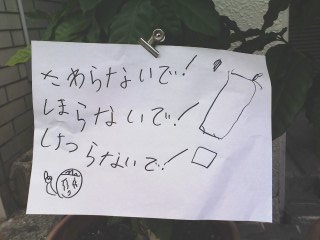 さわらないで!
しまらないで!
けつらないで!